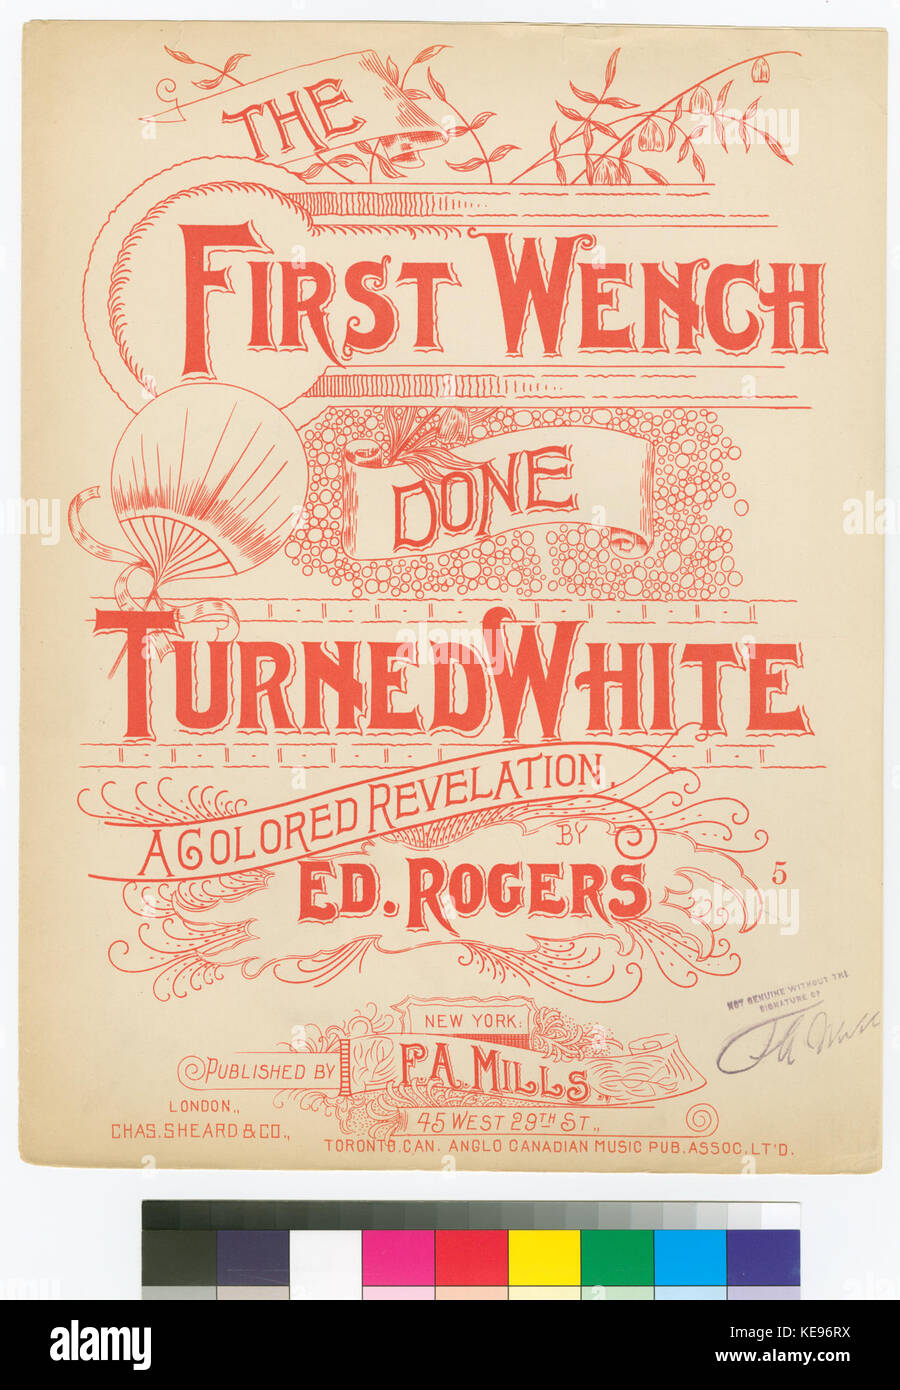 THE
FIRST WENCH
DONE
TURNED WHITE
A COLORED REVELATION.
BY
ED. ROGERS
5
NOT GENUINE WITHOUT THE
SIGNATURE OF
F A Mills
NEW YORK:
PUBLISHED BY F. A. MILLS
45 WEST 29TH ST.,
LONDON,,
CHAS. SHEARD & CO.,
TORONTO. CAN. ANGLO CANADIAN MUSIC PUB. ASSOC, LT'D.
alamy
alamy
Image ID: KE96RX
www.alamy.com